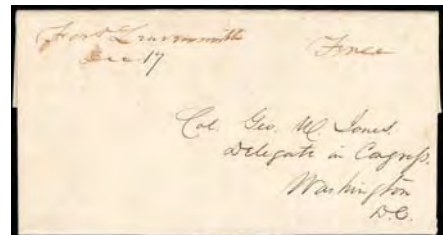 Fort Leavenworth
Dec 17
Free
Col. Geo. W. Jones.
Delegate in Congress.
Washington
D.C.